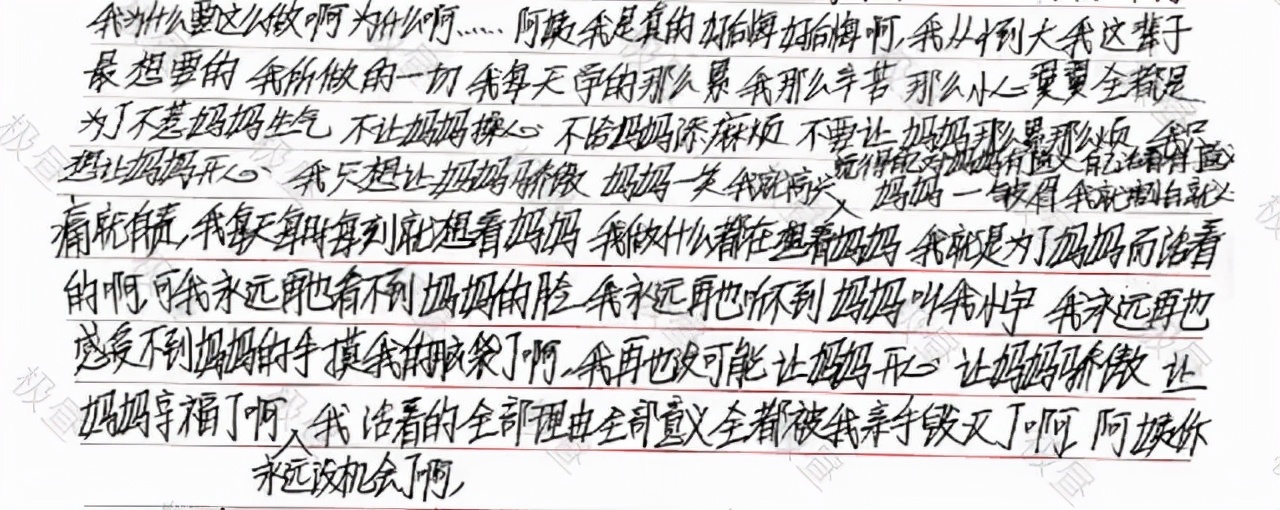 我为什么要这么做啊为什么啊…… 阿姨我是真的好后悔好后悔啊，我从小到大我这辈子
最想要的 我所做的一切 我每天学的那么累 我那么辛苦 那么小心翼翼全都是
为了不惹妈妈生气 不让妈妈操心 不给妈妈添麻烦 不要让妈妈那么累那么烦 我只
觉得自己对妈妈有意义 自己活着有意义
想让妈妈开心 我只想让妈妈骄傲 妈妈一笑我就高兴 妈妈一皱眉我就
痛就自责，我每天每时每刻就想着妈妈 我做什么都在想着妈妈 我就是为了妈妈而活着
的啊，可我永远再也看不到妈妈的脸 我永远再也听不到妈妈叫我小宇 我永远再也
感受不到妈妈的手摸我的脑袋了啊，我再也没可能让妈妈开心 让妈妈骄傲 让
妈妈幸福了啊 我活着的全部理由全部意义全都被我亲手毁灭了啊 阿姨你
永远没机会了啊，
极昼